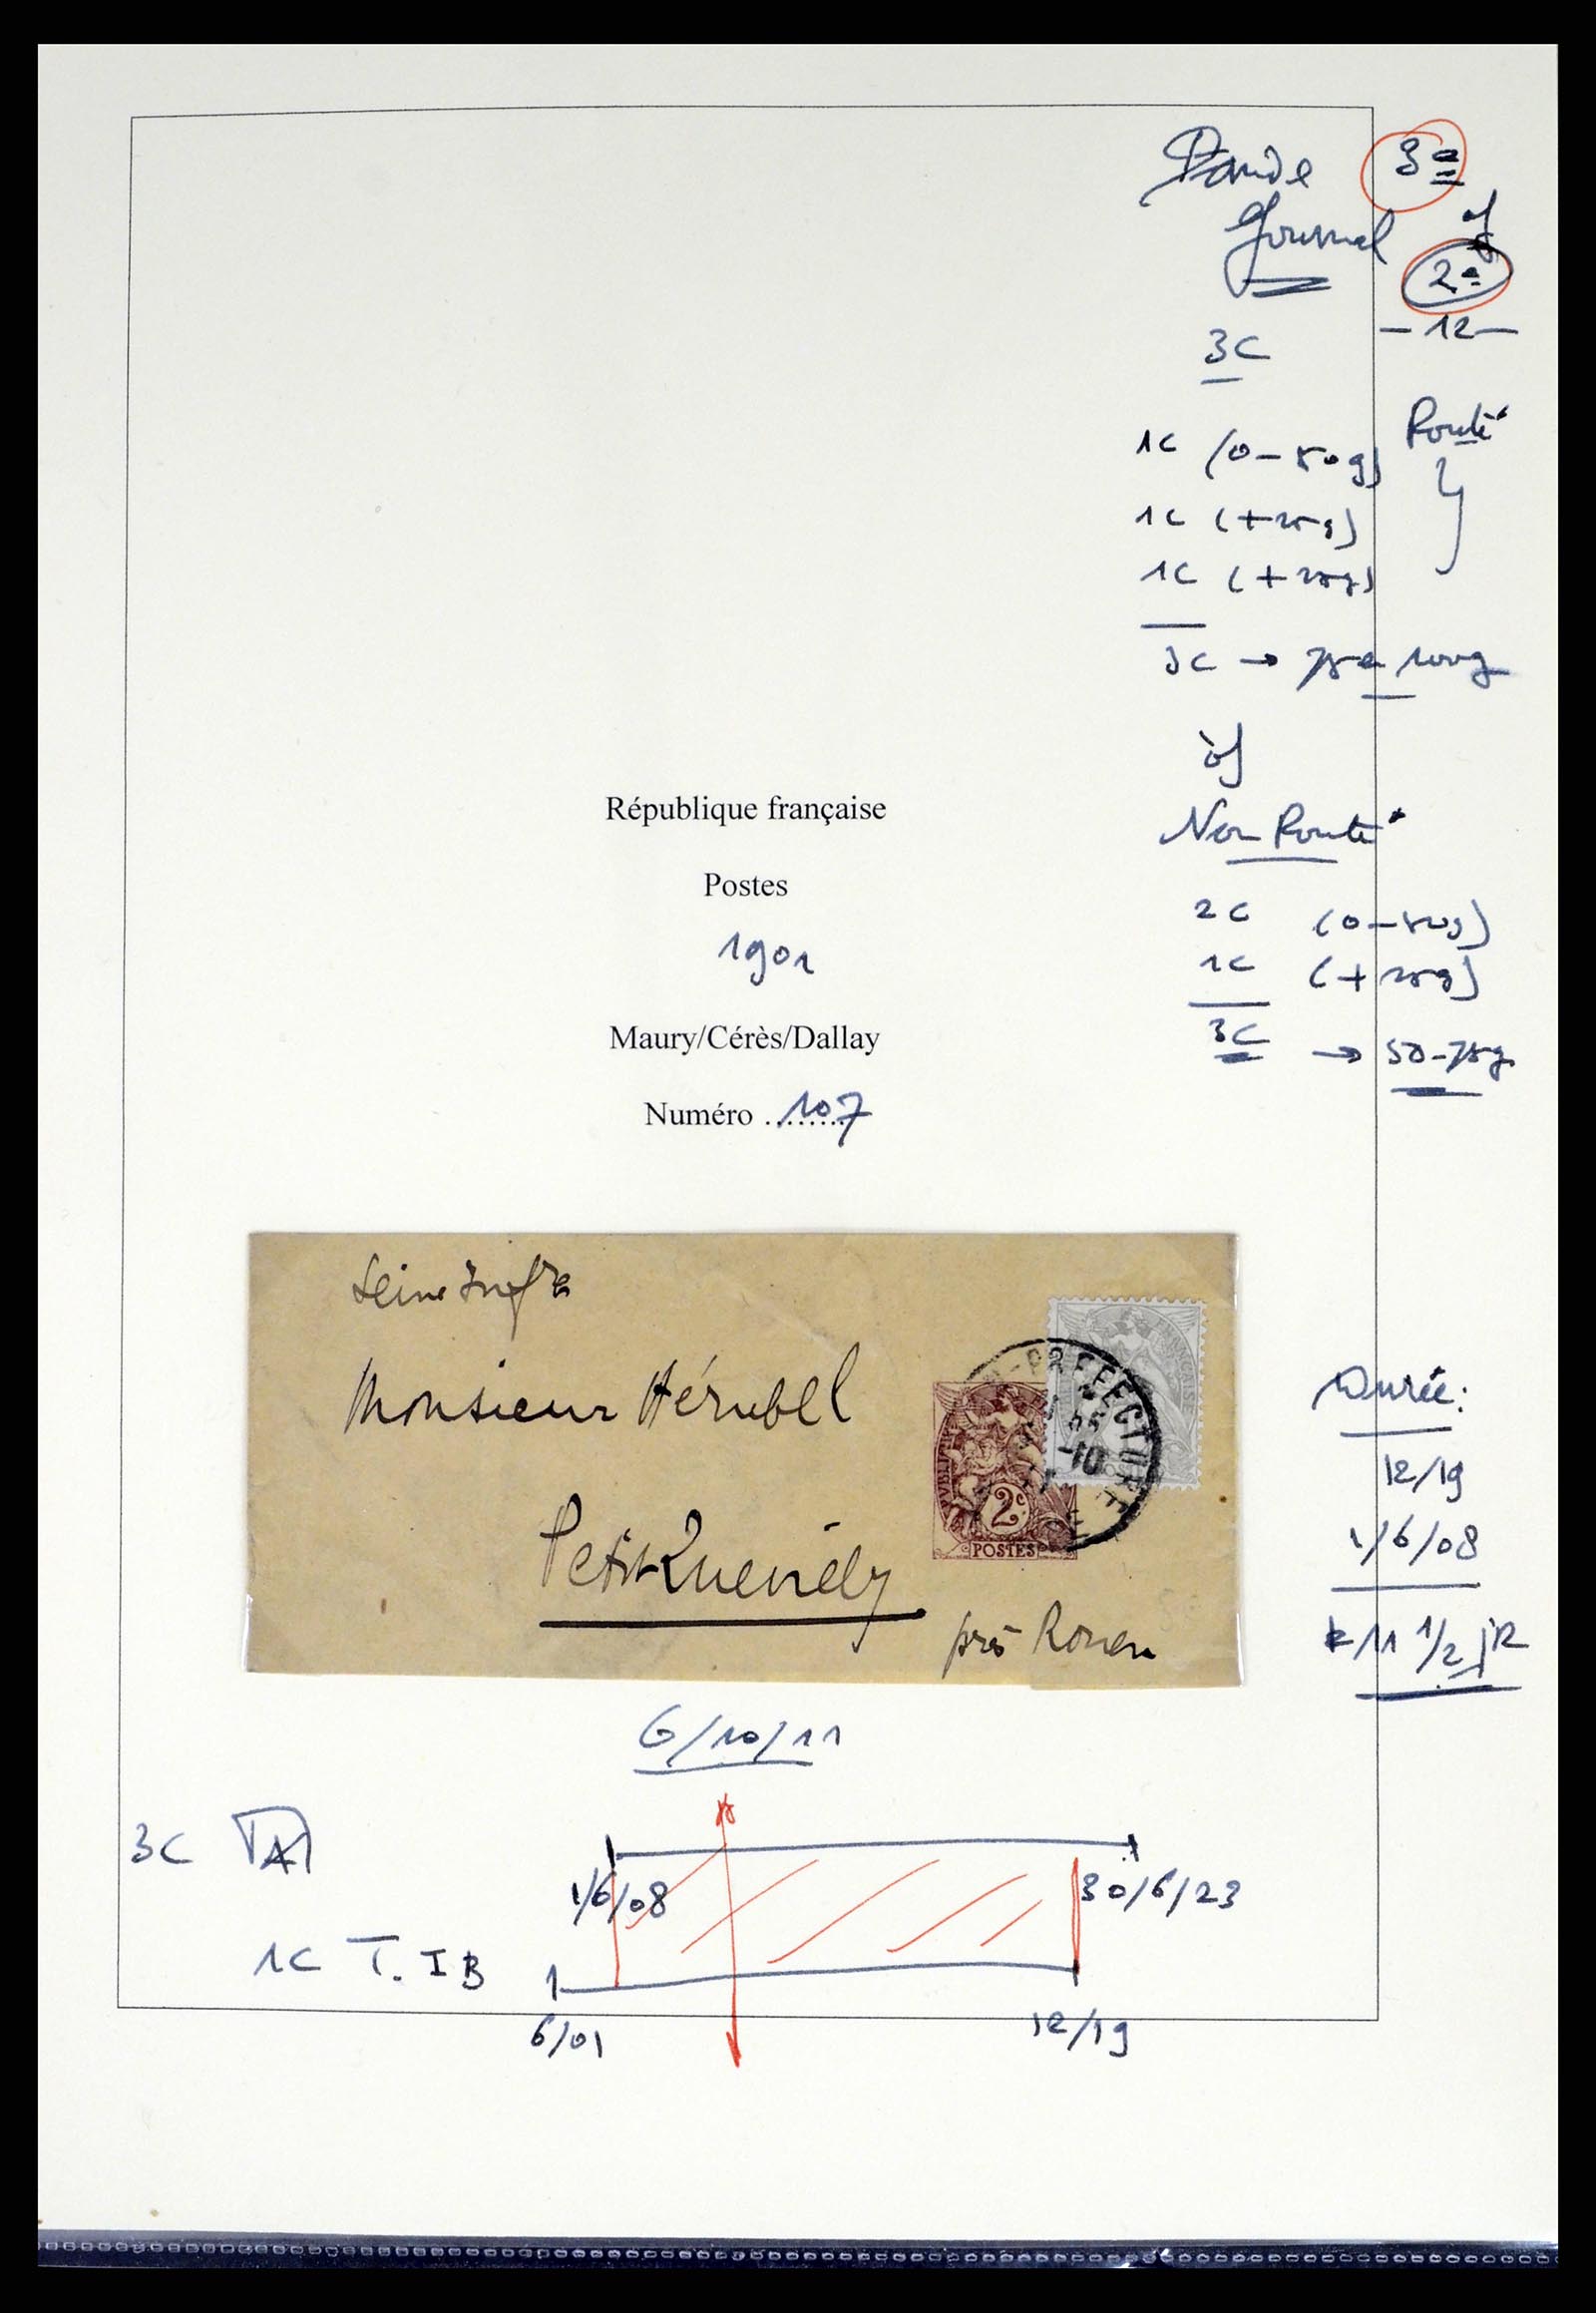 Bande
Journal
3e
of
2e
- 12 -
3C
1C (0-50g) Routé
1C (+25g)
1C (+25g)
3C → 75 a 100g
of
Non Routé
2C (0-50g)
1C (+25g)
3C → 50-75g
République française
Postes
1901
Maury/Cérès/Dallay
Numéro ........107
Seine Infre
Monsieur Hérubel
Petit Quevilly
près Rouen
PREFECTURE
-10
2c
POSTES
Durée:
12/19
1/6/08
11 1/2
6/10/11
3C
1/6/08
30/6/23
1C T. I B
6/01
12/19